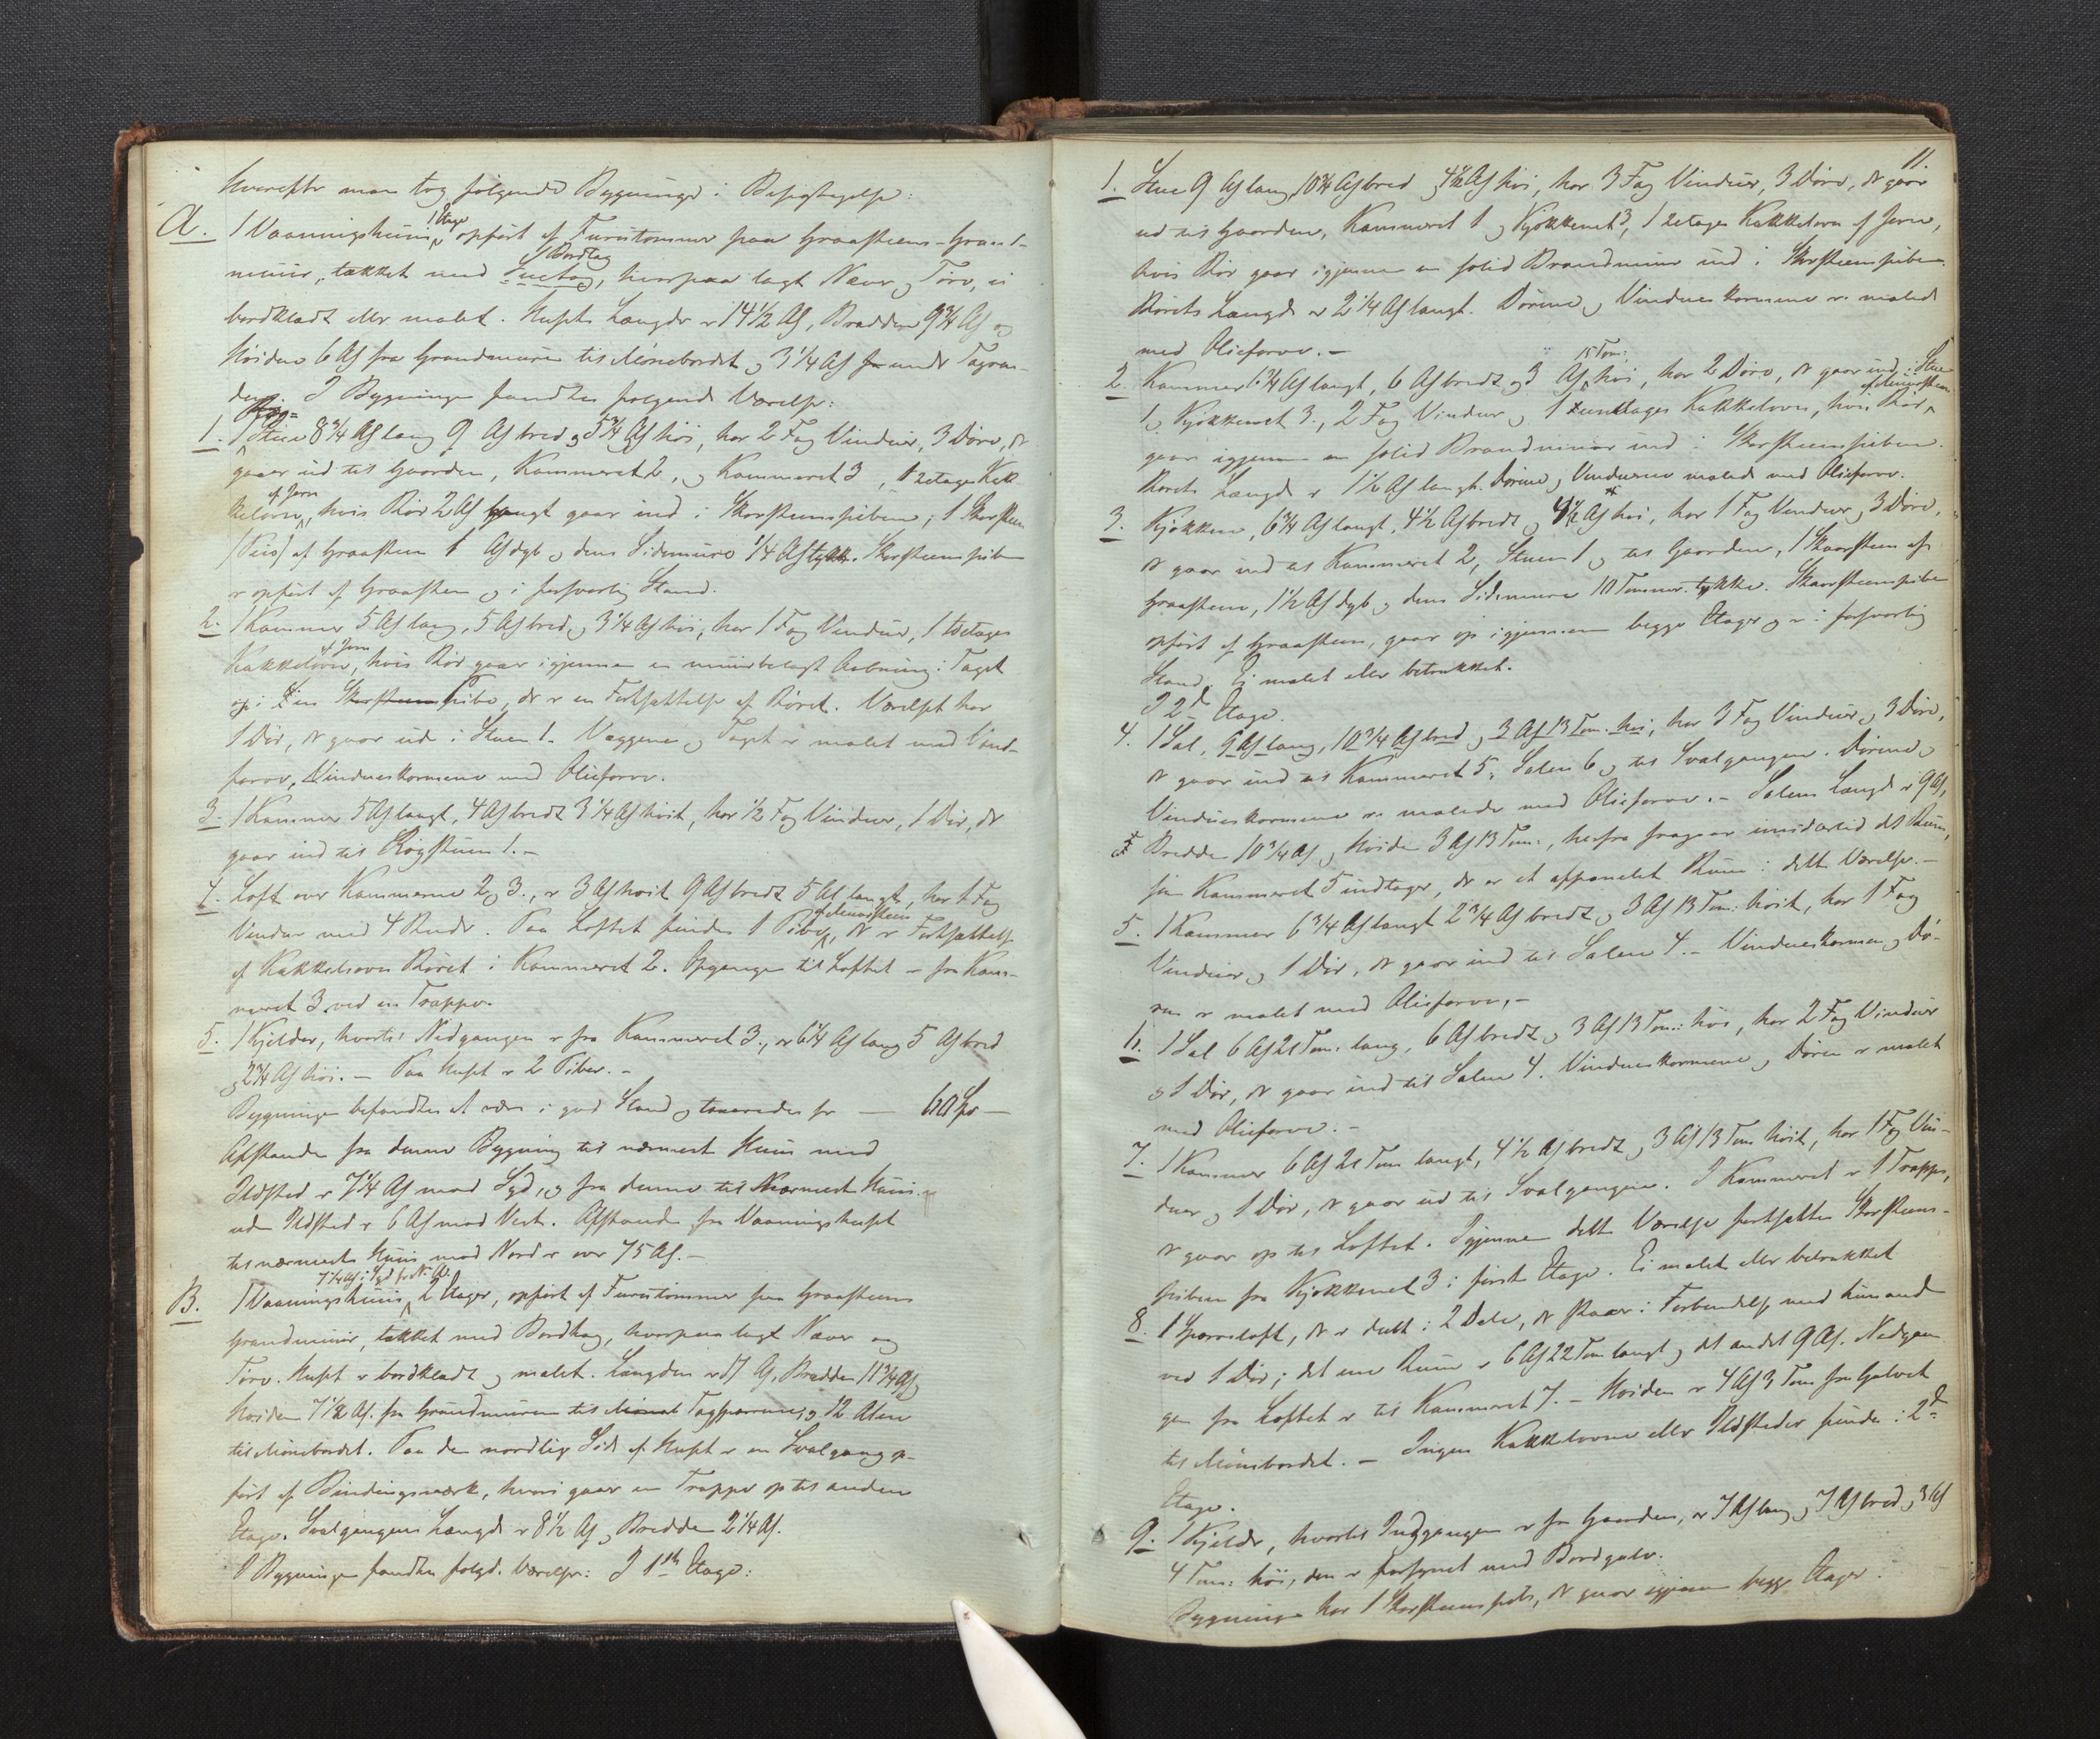 hvorefter man tog følgende Bygninger i Besigtigelse:
A. 1 Vaaningshuus, 1 Etage opført af Furutømmer paa Graasteens-Grund-
muur, tækket med Suetag, Bordtag hvorpaa lagt Næver og Törv, ei
bordklædt eller malet. Husets Længde er 14 1/2 Al, Bredden 9 3/4 Al og
Høiden 6 Al fra Grundmuren til Mönebordet og 3 1/4 Al under Tagran-
den. I Bygningen fandtes følgende Værelser:
1. 1 Røg-Stue 8 3/4 Al lang 9 Al bred og 5 3/4 Al høi, har 2 Fag Vinduer, 3 Döre, der
gaaer ud til Gaarden, Kammeret 2, og Kammeret 3, 1 2etages Kak-
kelovn af Jern, hvis Rör 2 Al langt gaar ind i Skorsteenspiben; 1 Skorsteen
(Peis) af Graasteen 1 Al dyb og dens Sidemure 1/4 Al tykk. Skorsteenspiben
er opfört af Graasteen og i forsvarlig Stand.
2. 1 Kammer 5 Al lang, 5 Al bred og 3 1/4 Al høi, har 1 Fag Vinduer, 1 toetages
Kakkelovn af Jern, hvis Rör gaar igjennem en muurbelagt Aabning i Taget
op i en Skorsteenspibe, der er en Fortsættelse af Röret. Værelset har
1 Dör, der gaar ud i Stuen 1. Væggene og Taget er malet med Vand-
farve, Vindueskarmene med Oliefarve.
3. 1 Kammer 5 Al langt, 4 Al bredt 3 1/4 Al høit, har 1/2 Fag Vinduer, 1 Dör, der
gaar ind til Røgstuen 1. -
4. Loft over Kammerne 2 og 3, er 3 Al høit 9 Al bredt 5 Al langt, har 1 Fag
Vindue med 4 Ruder. Paa Loftet findes 1 Pibe, af Muursteen der er Fortsættelse
af Kakkelovns Röret i Kammeret 2. Opgangen til Loftet er fra Kam-
meret 3 ved en Trappe.
5. 1 Kjelder, hvortil Nedgangen er fra Kammeret 3, er 6 1/4 Al lang 5 Al bred
og 2 3/4 Al høi. - Paa Huset er 2 Piber. -
Bygningen befandtes at være i god Stand og taxeredes for — 60 Spd —
Afstanden fra denne Bygning til nærmeste Huus med
Ildsted er 7 1/4 Al mod Syd, og fra denne til Nærmeste Huus
uden Ildsted er 6 Al mod Vest. Afstanden fra Vaaningshuset
til nærmeste Huus mod Nord er over 75 Al. -
B. 1 Vaaningshuus, 7 1/4 Al i Syd fra No. A. 2 Etager, opfört af Furutömmer paa Graasteens
Grundmuur, tækket med Bordtag, hvorpaa lagt Næver og
Törv. Huset er bordklædt og malet. Længden er 17 Al, Bredden 11 3/4 Al og
Høiden 7 1/2 Al. fra Grundmuren til Tagsperrene og 12 Alen
til Mönebordet. Paa den nordlige Side af Huset er en Svalgang op-
fört af Bindingsværk, hvori gaar en Trappe op til anden
Etage. Svalgangens Længde er 8 1/2 Al og Bredden 2 1/4 Al.
I Bygningen fandtes følgd. Værelser: I 1ste Etage:
11.
1. Stue 9 Al lang, 10 3/4 Al bred og 4 1/2 Al høi, har 3 Fag Vinduer, 3 Döre, der gaar
ud til Gaarden, Kammeret 2 og Kjökkenet 3, 1 2etages Kakkelovn af Jern,
hvis Rör gaar igjennem en solid Brandmuur ind i Skorsteenspiben.
Rörets Længde er 2 1/4 Al langt. Dörene og Vindueskarmene er malede
med Oliefarve. -
2. Kammer 6 3/4 Al langt, 6 Al bredt og 3 Al 15 Tom: høi, har 2 Döre, der gaar ind i Stue
1 og Kjökkenet 3, 2 Fag Vinduer og 1 Kakkelovn, hvis Rör af Muursteen
gaar igjennem en solid Brandmuur ind i Skorsteenspiben.
Rörets Længde er 1 1/2 Al langt. Dörene og Vinduerne malede med Oliefarve.
3. Kjökken, 6 3/4 Al langt, 4 1/2 Al bredt og 4 1/2 Al høi, har 1 Fag Vinduer og 3 Döre,
der gaar ind til Kammeret 2, Stuen 1 og til Gaarden, 1 Skorsteen af
Graasteen, 1 1/2 Al dyb og dens Sidemure 10 Tommer tykke. Skorsteenspiben
opfört af Graasteen, gaar op igjennem begge Etager og er i forsvarlig
Stand. Ei malet eller betrukket.
I 2d Etage.
4. 1 Sal, 9 Al lang, 10 3/4 Al bred og 3 Al 13 Tom. høi, har 3 Fag Vinduer og 3 Döre,
der gaar ind til Kammeret 5, Salen 6 og til Svalgangen. Dörene og
Vindueskarmene er malede med Oliefarve. - Salens Længde er 9 Al,
Bredden 10 3/4 Al og Høiden 3 Al 13 Tom:, herfra fragaar imidlertid det Rum,
som Kammeret 5 indtager, der er et afpanelet Rum i dette Værelse. -
5. 1 Kammer 6 3/4 Al langt 2 3/4 Al bredt og 3 Al 13 Tom: høit, har 1 Fag
Vinduer og 1 Dör, der gaar ind til Salen 4. - Vindueskarmen og Dö-
ren er malet med Oliefarve, -
6. 1 Sal 6 Al 21 Tom. lang, 6 Al bredt og 3 Al 13 Tom: høi, har 2 Fag Vinduer
og 1 Dör, der gaar ind til Salen 4. Vindueskarmene og Dören er malet
med Oliefarve. -
7. 1 Kammer 6 Al 21 Tom langt, 4 1/2 Al bredt og 3 Al 13 Tom høit, har 1 Fag Vin-
duer og 1 Dör, der gaar ud til Svalgangen. I Kammeret er 1 Trappe,
der gaar op til Loftet. Igjennem dette Værelse fortsættes Skorsteens-
piben fra Kjökkenet 3 i förste Etage. Ei malet eller betrukket
8. 1 Sperreloft, der er deelt i 2 Dele, der staaer i Forbindelse med hinanden
ved 1 Dör; det ene Rum er 6 Al 22 Tom langt og det andet 9 Al. Nedgan-
gen fra Loftet er til Kammeret 7. - Høiden er 4 Al 3 Tom fra Gulvet
til Mönebordet. - Ingen Kakkelovne eller Ildsteder findes i 2d
Etage.
9. 1 Kjelder, hvortil Indgangen er fra Gaarden, er 7 Al lang og 7 Al bred og 3 Al
4 Tom: høi, den er forsynet med Bordgulv.
Bygningen har 1 Skorsteenspibe, der gaar igjennem begge Etager.